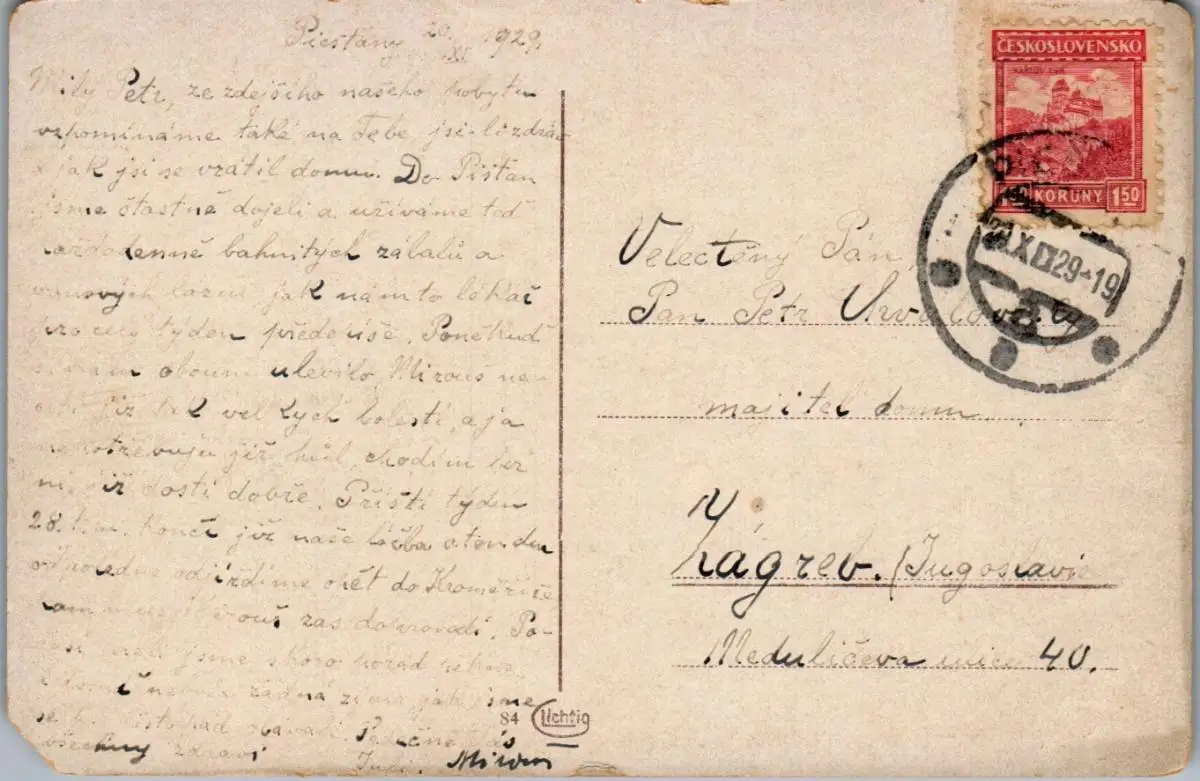 Piešťany 20. XI. 1929.
Milý Petr, ze zdejšího našeho pobytu
vzpomínáme také na Tebe, jsi-li zdráv
a jak jsi se vrátil domů. Do Píšťan
jsme šťastně dojeli a užíváme teď
každodenně bahnitých zábalů a
vanových lázní jak nám to lékař
pro celý týden předepíše. Poněkud
se nám oboum ulevilo, Mirouš ne-
již tak velkých bolestí, a já
nepotřebuju již hůl, chodím bez
ní již dosti dobře. Příští týden
28. t.m. končí již naše léčba a ten den
odpoledne odjíždíme opět do Kroměříže
Mirouš zas doprovodí. Po-
časí jsme skoro pořád pěkné
a není žádná zima, jak jsme
se listopad obávali. Srdečně Vás
všechny zdraví
Mirouš
84 Lichtig
ČESKOSLOVENSKO
1.50 KORUNY 1.50
21.XI.29-19
Velectěný Pán,
Pan Petr
majitel domu
V
Zágreb. (Jugoslavie
Meduličeva ulice 40.